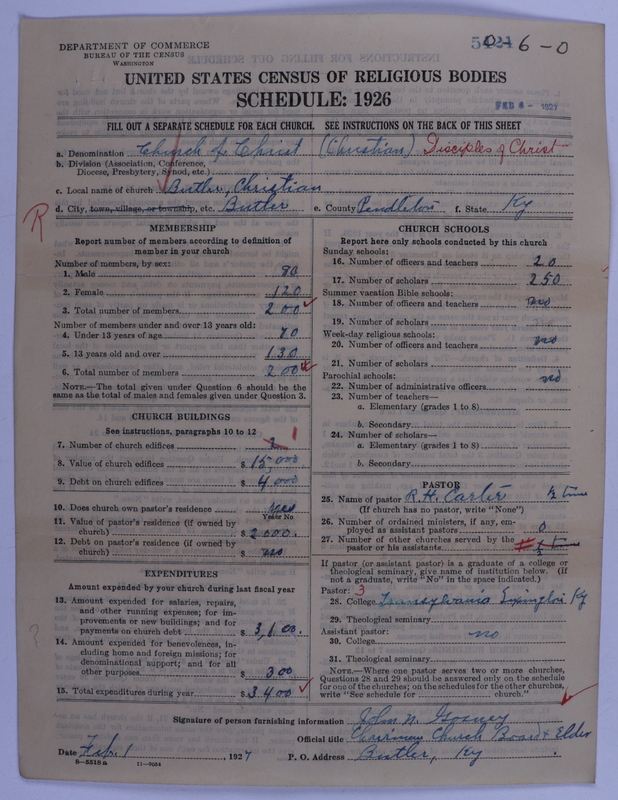 DEPARTMENT OF COMMERCE
BUREAU OF THE CENSUS
WASHINGTON
0-6-0
UNITED STATES CENSUS OF RELIGIOUS BODIES
SCHEDULE: 1926
FEB 4 - 1927
FILL OUT A SEPARATE SCHEDULE FOR EACH CHURCH. SEE INSTRUCTIONS ON THE BACK OF THIS SHEET
a. Denomination Church of Christ (Christian) Disciples of Christ
b. Division (Association, Conference, Diocese, Presbytery, Synod, etc.)
c. Local name of church Butler, Christian
d. City, town, village, or township, etc. Butler e. County Pendleton f. State Ky
R
MEMBERSHIP
Report number of members according to definition of member in your church
Number of members, by sex:
1. Male 80
2. Female 120
3. Total number of members 200
Number of members under and over 13 years old:
4. Under 13 years of age 70
5. 13 years old and over 130
6. Total number of members 200
NOTE.—The total given under Question 6 should be the same as the total of males and females given under Question 3.
CHURCH BUILDINGS
See instructions, paragraphs 10 to 12
7. Number of church edifices 1
8. Value of church edifices $ 15,000
9. Debt on church edifices $ 4000
10. Does church own pastor's residence yes
Yes or No
11. Value of pastor's residence (if owned by church) $ 2000.
12. Debt on pastor's residence (if owned by church) $ no
EXPENDITURES
Amount expended by your church during last fiscal year
13. Amount expended for salaries, repairs, and other running expenses; for improvements or new buildings; and for payments on church debt $ 3,100.
14. Amount expended for benevolences, including home and foreign missions; for denominational support; and for all other purposes $ 300
15. Total expenditures during year $ 3400
CHURCH SCHOOLS
Report here only schools conducted by this church
Sunday schools:
16. Number of officers and teachers 20
17. Number of scholars 250
Summer vacation Bible schools:
18. Number of officers and teachers no
19. Number of scholars
Week-day religious schools:
20. Number of officers and teachers no
21. Number of scholars
Parochial schools: no
22. Number of administrative officers
23. Number of teachers—
a. Elementary (grades 1 to 8)
b. Secondary
24. Number of scholars—
a. Elementary (grades 1 to 8)
b. Secondary
PASTOR
25. Name of pastor R. H. Carter ½ time
(If church has no pastor, write "None")
26. Number of ordained ministers, if any, employed as assistant pastors 0
27. Number of other churches served by the pastor or his assistants
If pastor (or assistant pastor) is graduate of a college or theological seminary, give name of institution below. (If not a graduate, write "No" in the space indicated.)
Pastor: 3
28. College Transylvania Lexington Ky
29. Theological seminary
Assistant pastor: no
30. College
31. Theological seminary
NOTE.—Where one pastor serves two or more churches, Questions 28 and 29 should be answered only on the schedule for one of the churches; on the schedules for the other churches, write "See schedule for church."
Signature of person furnishing information John N. Gosney
Official title Chairman Church Board & Elder
Date Feb. 1, 1927 P. O. Address Butler, Ky.
8-5518a 11-9034